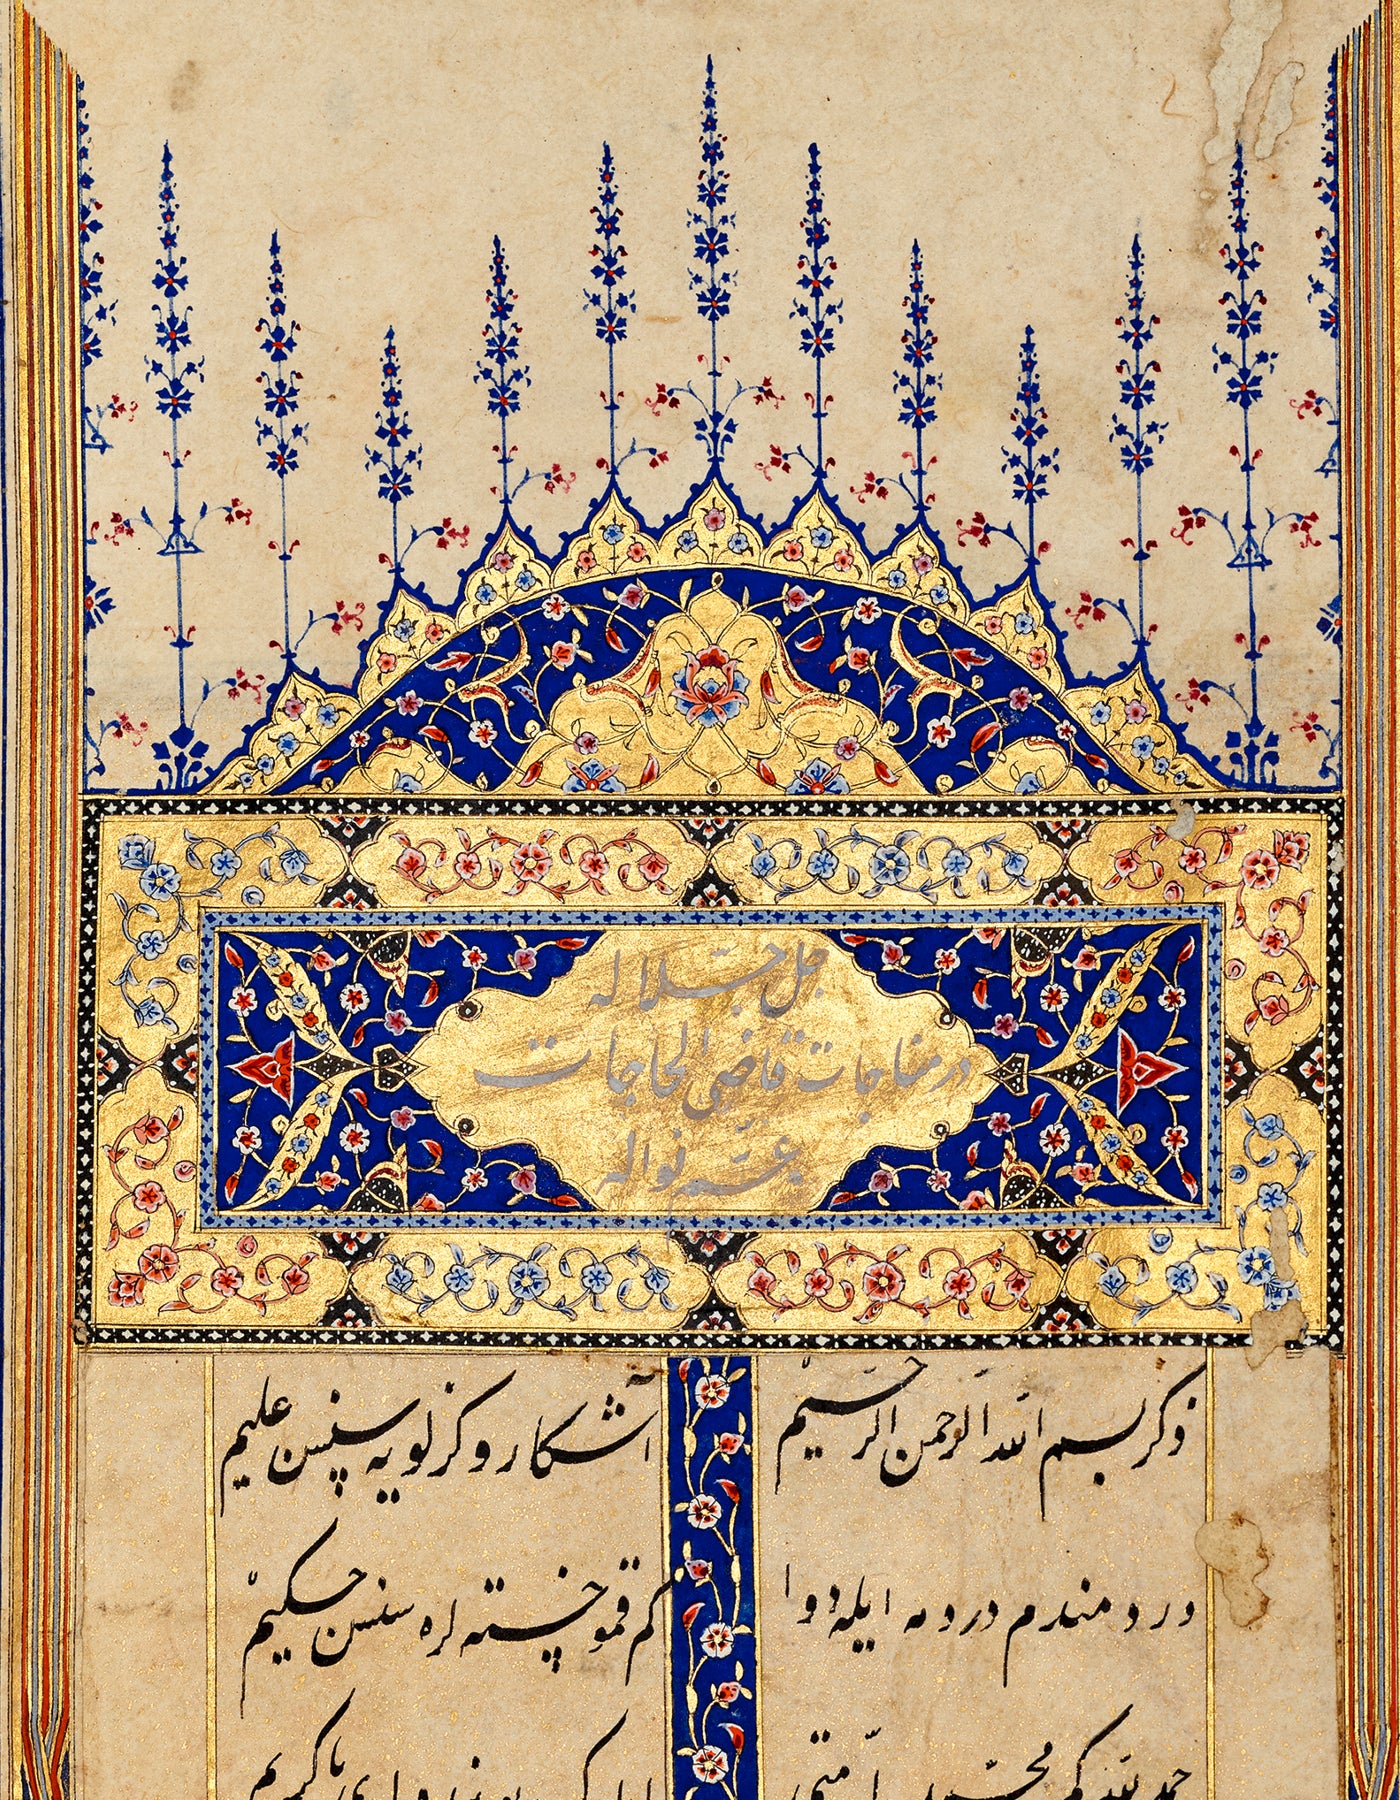 جل جلاله
در مناجات قاضی الحاجات
عم نواله
ذکر بسم الله الرحمن الرحیم
آشکار و کزلویه سنسن علیم
دردمندم دردمه ایله دوا
کم قمو خسته لره سنسن حکیم
حمد لله کم محمد امتی